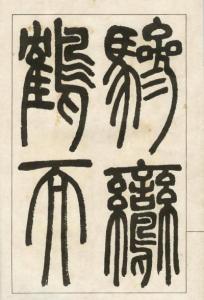 驂鸞
鶴不